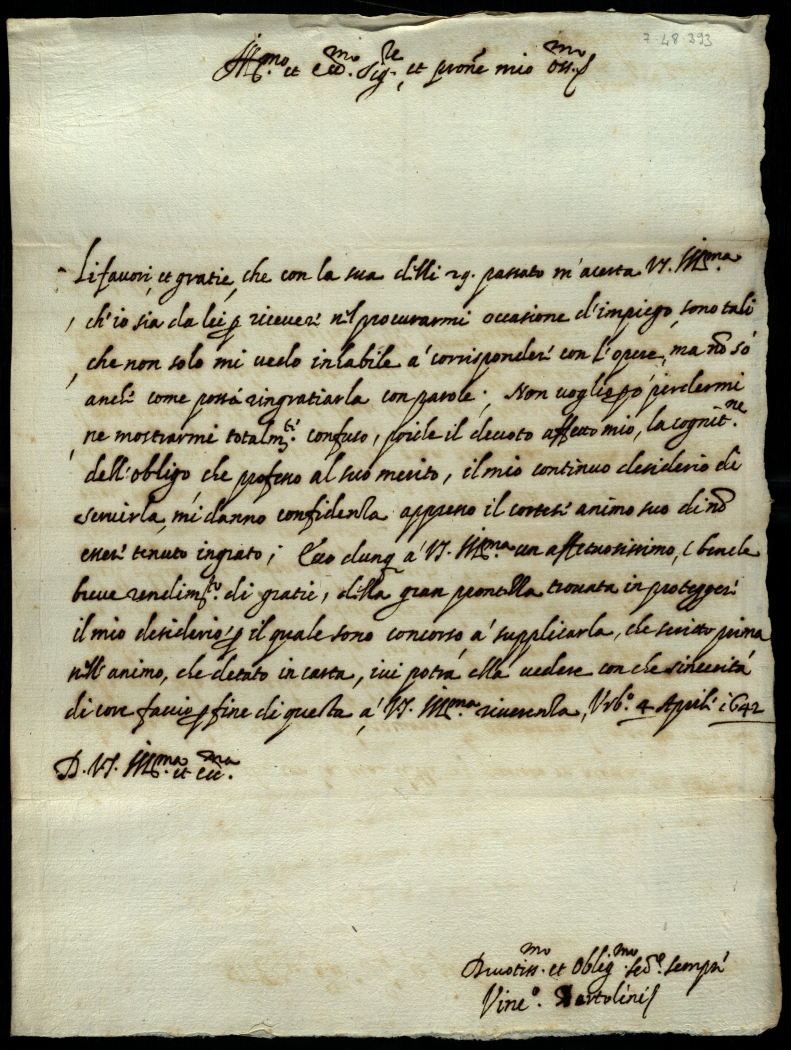 7-48-393
Ill.mo et Ecc.mo Sig.re et prone mio oss.mo
Li favori, et gratie, che con la sua delli 29. passato m'acerta V.S. Ill.ma
ch'io sia da lei p ricevere nel procurarmi occasione d'impiego, sono tali
che non solo mi vedo inhabile á corrisponder con l'opere, ma nō só
anche come possa ringratiarla con parole; Non voglio pó perdermi
ne mostrarmi totalm.te confuso, poiche il devoto affetto mio, la cognit.ne
dell'obligo, che professo al suo merito, il mio continuo desiderio di
servirla, mi danno confidenza appresso il cortese animo suo di nō
esser tenuto ingrato; dunq á V.S. Ill.ma un affetuosissimo, e benche
breve rendim.to di gratie, della gran prontezza trovata in proteggere
il mio desiderio, p il quale sono concorso á supplicarla, che scritto prima
nell'animo, che detato in carta, ivi potrá ella vedere con che sincerità
di core faccio p fine di questa á V.S. Ill.ma riverenza, Urb.o 4 Aprile 1642
D. V.S. Ill.ma et Ecc.ma
Devotiss.mo et Oblig.mo se.e sempre
Vinc.o Bartolini